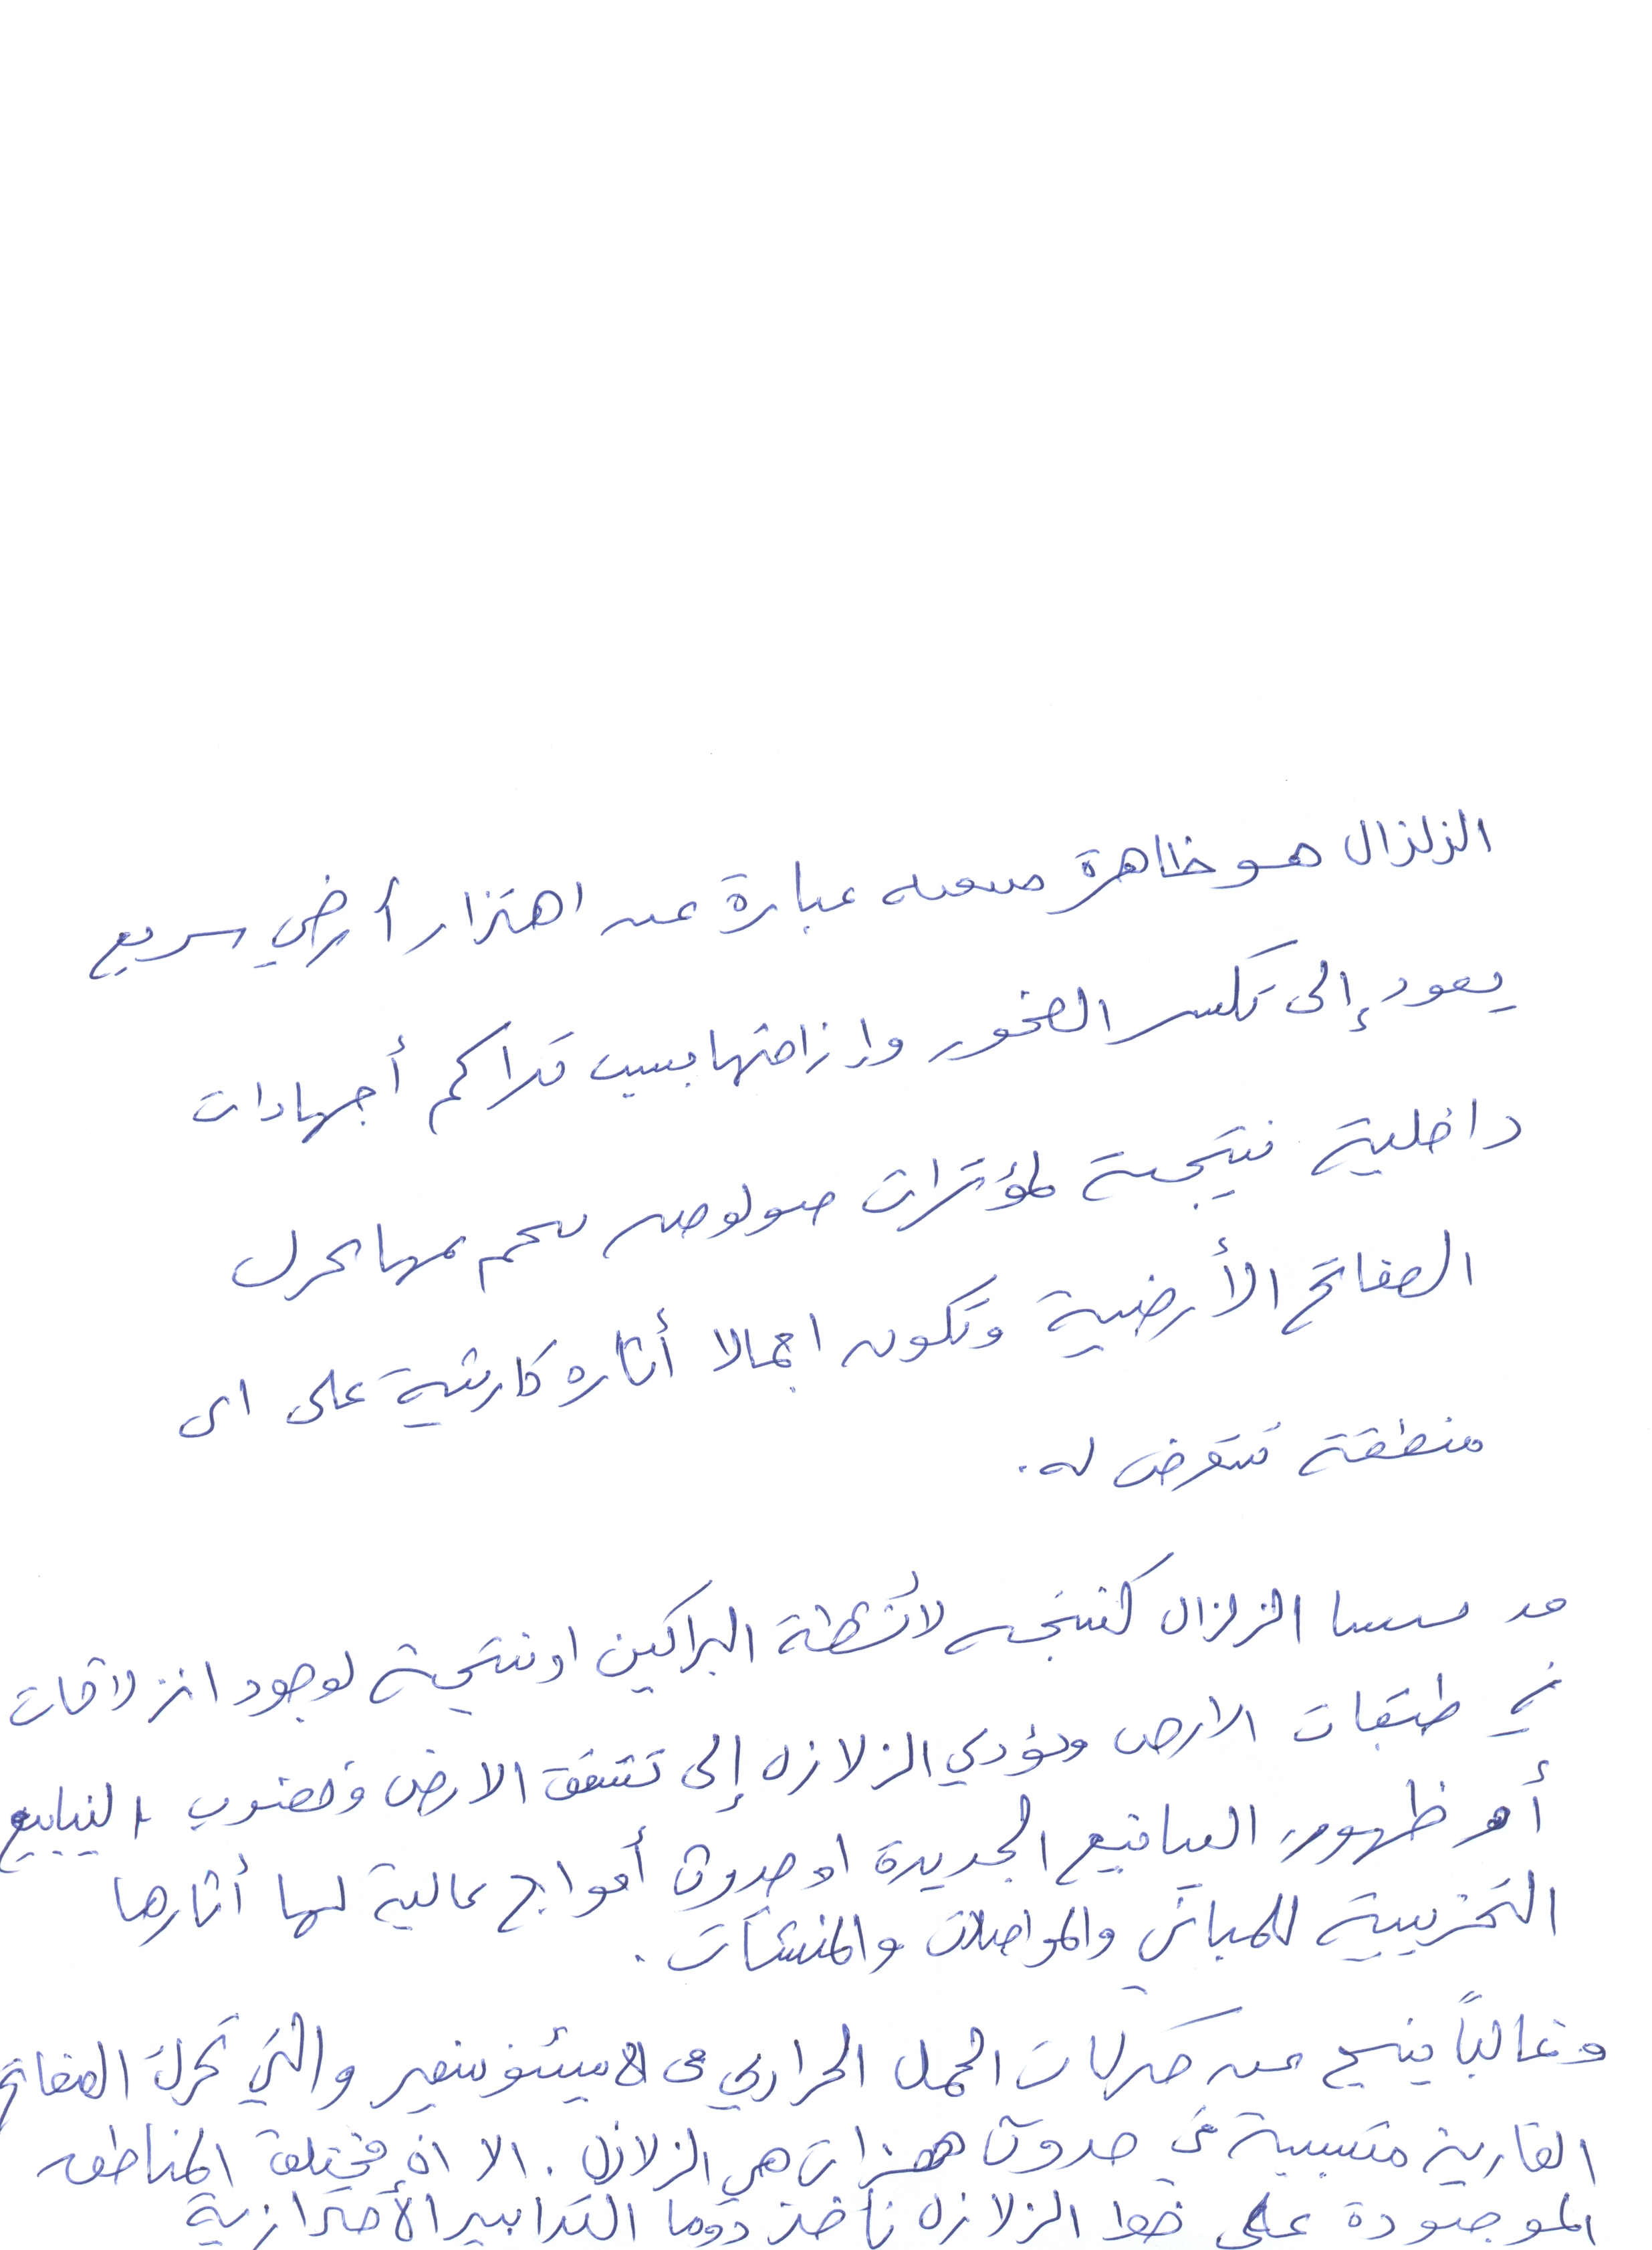 الزلزال هو ظاهرة طبيعية عبارة عن اهتزاز أرضي سريع
يعود إلى تكسر الصخور وإزاحتها بسبب تراكم أجهادات
داخلية نتيجة لمؤثرات جيولوجية ينجم عنها تحرك
الصفائح الأرضية وتكون اجمالا أثاره كارثية على اى
منطقة تتعرض له.
قد ينشأ الزلزال كنتيجة لأنشطة البراكين او نتيجة لوجود انزلاقات
في طبقات الارض ويؤدي الزلازل إلى تشقق الارض ونضوب الينابيع
أو ظهور الينابيع الجديدة او حدوث أمواج عالية لها أثارها
التخريبية للمباني والمواصلات والمنشآت.
وغالباً ينتج عن حركات الحمل الحراري في الاسينوسفير والتي تحرك الصفائح
القارية متسببة في حدوث هزات هي الزلازل. الا ان مختلف المناطق
الموجودة على خط الزلازل تأخذ دوما التدابير الأحترازية